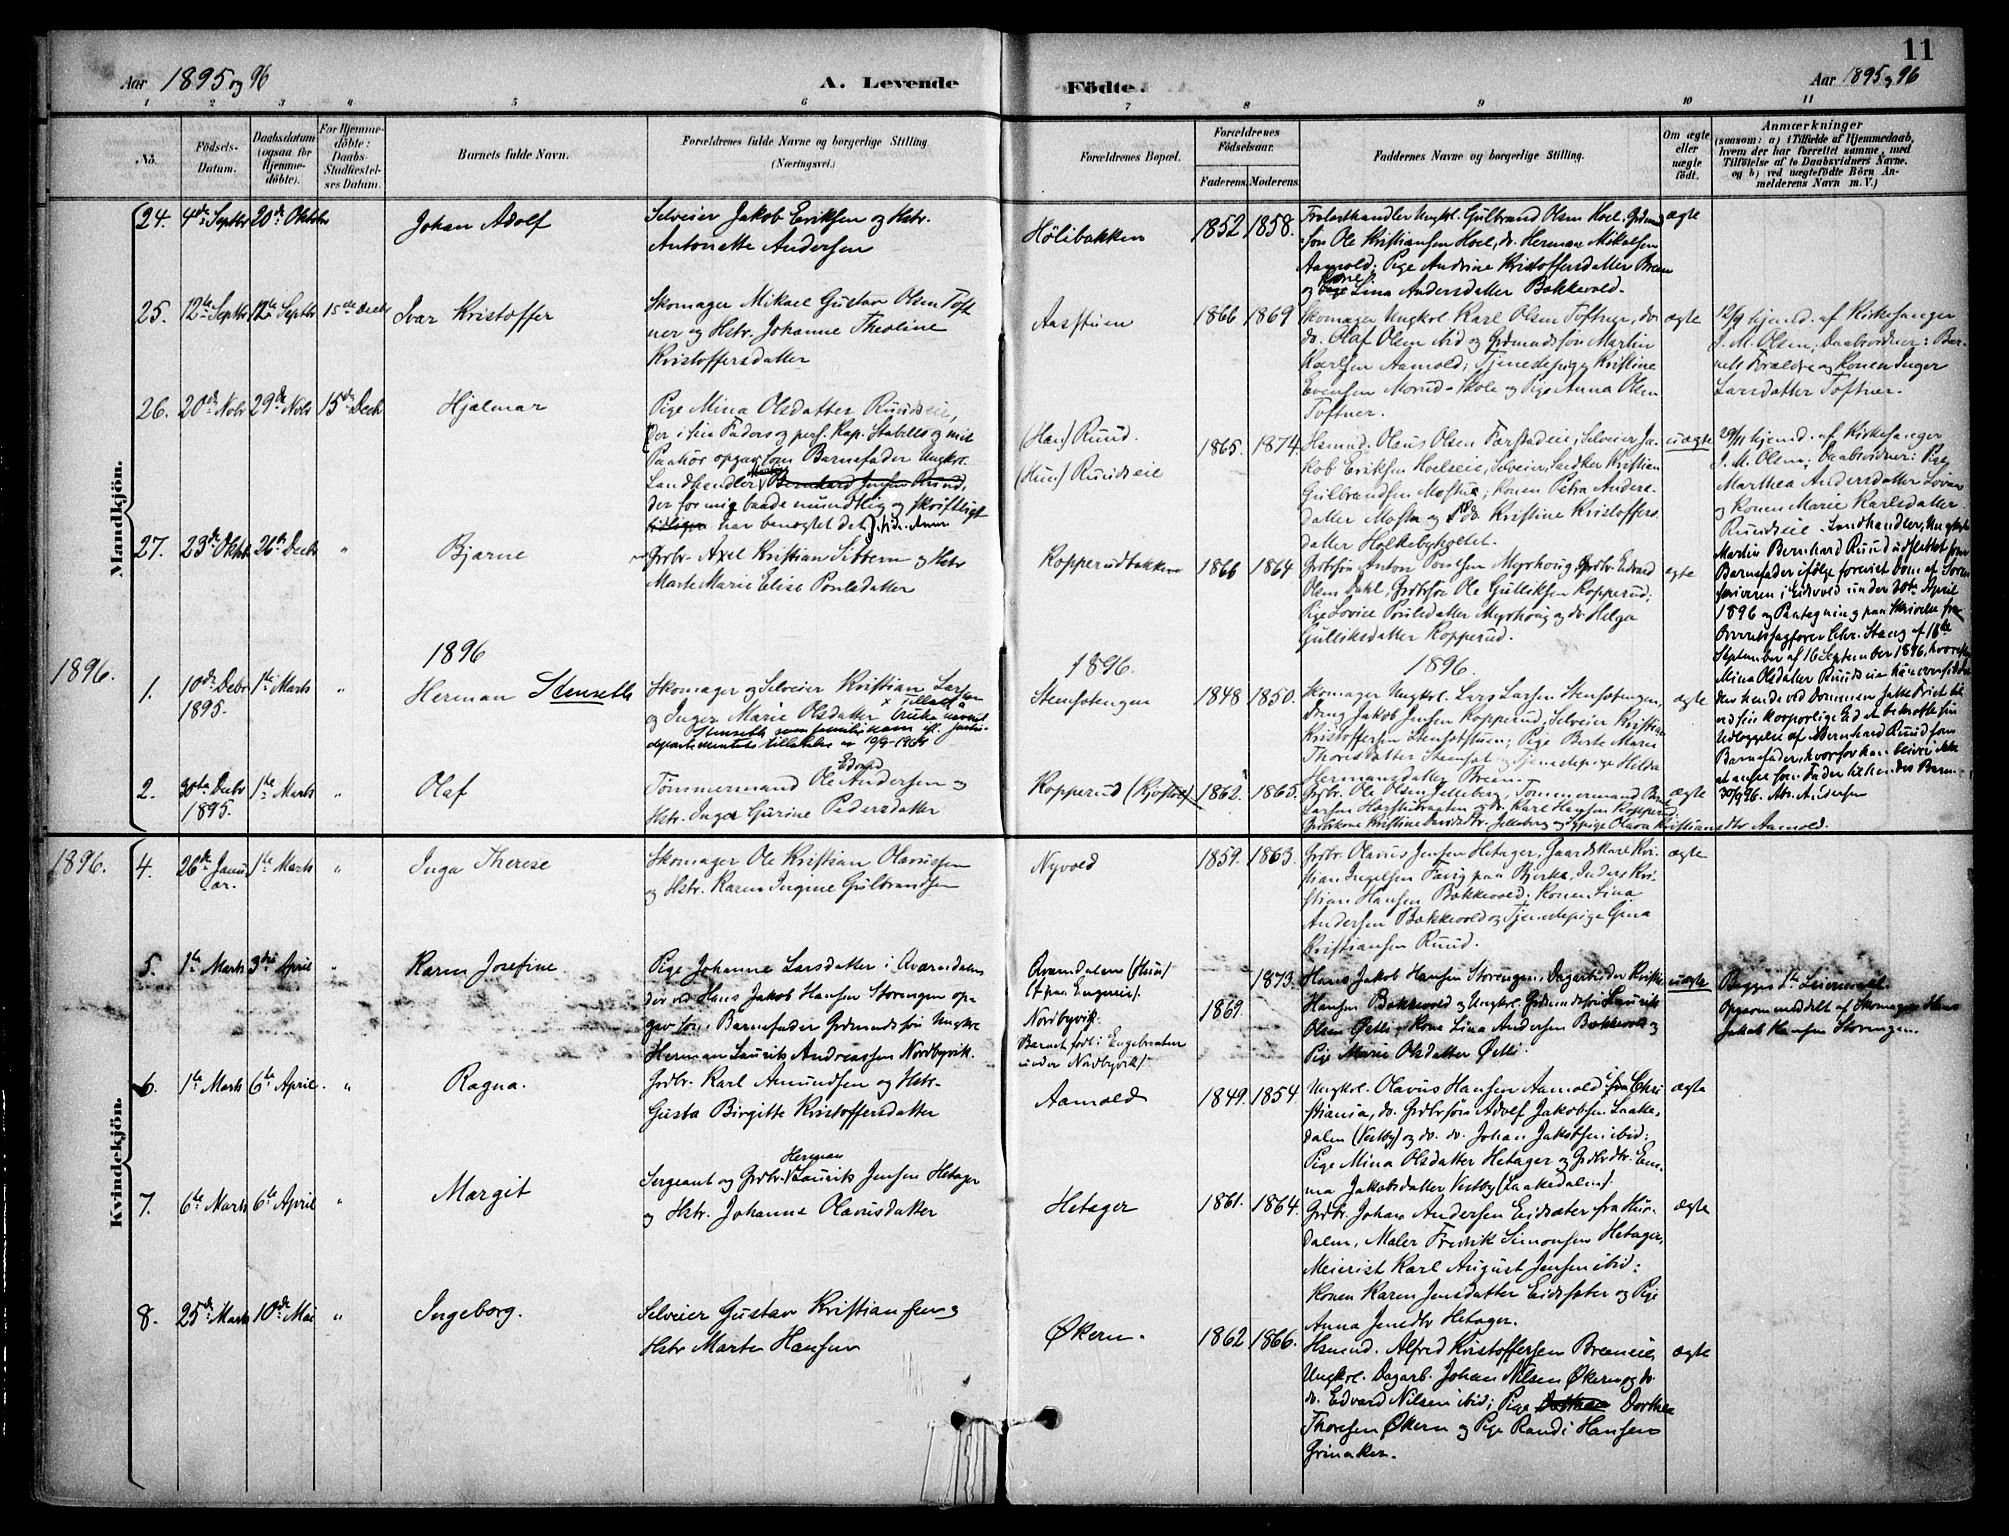 11
Aar 1895 og 96
A. Levende
Födte.
Aar 1895 og 96
1 2 3 4 5 6 7 8 9 10 11
No.
Födsels-Datum.
Daabsdatum (ogsaa for Hjemme-döbte).
For Hjemme-döbte: Daabs-Stadfæstel-ses Datum.
Barnets fulde Navn.
Forældrenes fulde Navne og borgerlige Stilling.
(Næringsvei.)
Forældrenes Bopæl.
Forældrenes Födselsaar.
Faderens. Moderens.
Faddernes Navne og borgerlige Stilling.
Om ægte eller uægte födt.
Anmærkninger
(saasom: a) i Tilfælde af Hjemmedaab, hvem der har forrettet samme, med Tilföielse af to Daabsvidners Navne. og b) ved uægtefödte Börn Anmelderens Navn m. V.)
Mandkjön.
24. 4de Septbr 20de Oktober
Johan Adolf
Selveier Jakob Eriksen og Hstr.
Antonette Andersen
Hölibakken
1852 1858.
Gulbrand Olsen Hoel,
Ole Kristiansen Hoel, do. Herman Mikalsen
Aamold; Pige Andrine Kristoffersdatter Breen
og Kone Lina Andersdatter Bakkevold.
ægte
25. 12te Septbr 12te Septbr 15de Decbr
Ivar Kristoffer
Skomager Mikael Gustav Olsen Toft
ner og Hstr. Johanne Theoline
Kristoffersdatter
Aasstuen
1866 1869
Skomager Ungkrl. Karl Olsen Toftner, do.
do. Olaf Olsen ibid og Grdmandssön Martin
Karlsen Aamold; Tjenestepige Kristine
Evensen Morud-Skole og Pige Anna Olsen
Toftner.
ægte
12/9 hjemd. af Kirkesanger
J. M. Olsen, Daabsvidner: Bar-
nets Forældre og Konen Inger
Larsdatter Toftner.
26. 20de Novbr 29de Novbr 15de Decbr
Hjalmar
Pige Mina Olsdatter Ruudseie,
der i sin Faders og pers. Kap. Stabells og mit
Paahør opgav som Barnefader Ungkrl.
Landhandler Martin Bernhard Jensen Ruud,
der for mig baade mundtlig og skriftligt
har benægtet det
(Han) Ruud.
(Hun) Ruudseie
1865. 1874.
Hsmnd. Olaus Olsen Færstadeie, Selveier Ja-
kob Eriksen Hoelseie, Selveier, Snedker Kristian
Gulbrandsen Mostue; Konen Petra Anders-
datter Mostue og Kristine Kristoffers-
datter Holkebyholtet.
uægte
29/11 hjemd. af Kirkesanger
J. M. Olsen; Daabsvidner: Pige
Marthea Andersdatter
og Konen Marie Karlsdatter
Ruudseie. Landhandler, Ungkarl
Martin Bernhard Ruud udslettet som
Barnefader ifölge foreviist Dom af Soren-
skriveren i Eidsvold under 20de April
1896 og Paategning paa Skrivelse fra
Overretssagförer Chr. Stang af 18de
September af 16 September 1896, hvorefter
Mina Olsdatter Ruudseie har oversiddet
den hende ved Dommen satte Frist til
ved sin korporlige Eed at bekræfte sin
Udlæggelse af Bernhard Ruud som
Barnefader, hvorfor han bliver ikke
at ansee som Fader til hendes Barn.
30/9 96. Andersen
27. 23de Oktbr 26de Decbr "
Bjarne
Grdbr. Axel Kristian Sibbern og Hstr
Marte Marie Elise Paulsdatter
Kopperudbakken
1866 1864
Grdbrsön Anton Myrhoug, Grdbr. Edvard
Olsen Dahl, Grdbrsön Ole Gulliksen Kopperud;
Pige Lovise Paulsdatter Myrhoug og do. Helga
Gulliksdatter Kopperud.
ægte
1896.
1896
1896.
1896.
1. 10de Decbr 1895. 1ste Marts "
Herman Stenseth
Skomager og Selveier Kristian Larsen
og Inger Marie Olsdatter x Tillatt å
bruke navnet
Stenseth som familienavn efter justis-
departementets tillatelse av 19/9-1964
Stensstengen
1848 1850.
Skomager Ungkrl. Lars Larsen Stensstengen,
Dreng Jakob Jensen Kopperud, Selveier Kristian
Kristoffersen Stensetstuen; Pige Berte Marie
Thoresdatter Stenset og Tjenestepige Hilda
Hermansdatter Breen.
ægte
2. 30te Decbr 1895. 1ste Marts "
Olaf
Tømmermand Ole Edvard Andersen og
Hstr. Inga Gurine Pedersdatter
Kopperud (Kjostvet)
1862. 1865.
Grdbr. Ole Olsen Jelleberg, Tømmermand
Larsen og do. Karl Hansen Kopperud;
Jelleberg og Sypige Olava Kristiansdtr Aamold.
ægte
1896.
Kvindekjön.
4. 26de Januar. 1ste Marts "
Inga Therese
Skomager Ole Kristian Olavussen
og Hstr. Karen Ingine Gulbrandsen
Nyvold
1859. 1863.
Grdbr. Olavus Jensen Hetager, Gaardskarl Kri-
stian Ingelsen Tærig paa Bjerke, Inderst Kri-
stian Hansen Bakkevold; Konen Lina
Andersen Bakkevold og Tjenestepige Gina
Kristiansen Ruud.
ægte
5. 1ste Marts 3die April "
Karen Josefine
Pige Johanne Larsdatter i Qværndalen
der ved Hans Jakob Hansen Storengen op-
gav som Barnefader Grdmandssön Ungkrl
Herman Laurits Andreassen Nordbyvik.
Qværndalen (Hun)
(fra Engerseie).
Nordbyvik.
Barnet födt i Engebraaten
under Nordbyvik).
1873.
1869.
Hans Jakob Hansen Storengen, Dagarbeider Kristian
Hansen Bakkevold og Ungkrl. Grdmandssön Laurits
Olsen Østli; Kone Lina Andersen Bakkevold og
Pige Marie Olsdatter Østli.
uægte
Begges 1ste Leiermaal.
Opgaven meddelt af Skomager Hans
Jakob Hansen Storengen.
6. 1ste Marts 6te April "
Ragna.
Grdbr. Karl Amundsen og Hstr.
Gusta Birgitte Kristoffersdatter
Aamold
1849. 1854
Ungkrl. Olavus Hansen Aamold i fra Chri-
stiania, do. Grdbrsön Adolf Jakobsen Laake-
dalen (Vestby) og do. do. Johan Jakobsen ibid:
Pige Mina Olsdatter Hetager og Grdbrdtr. Em-
ma Jakobsdatter Vestby (Laakedalen).
ægte
7. 6te Marts 6te April "
Margit
Sergeant og Grdbr. Herman Laurits Jensen Hetager
og Hstr. Johanne Olavusdatter
Hetager
1861. 1864.
Grdbr. Johan Andersen Eidsæter fra Hur-
dalen, Maler Fredrik Simonsen Hetager,
Meierist Karl August Jensen ibid:
Konen Karen Jensdatter Eidsæter og Pige
Anna Jensdtr Hetager.
ægte
8. 25de Marts 10de Mai "
Ingeborg.
Selveier Gustav Kristiansen og
Hstr Marte Hansen
Økern.
1862 1866.
Hsmnd. Alfred Kristoffersen Breeneie,
Ungkrl. Dagarb. Johan Nilsen Økern og do
do. Edvard Nilsen ibid; Pige Dorthea
Thoresen Økern og Pige Randi Hansen
Grinaker.
ægte